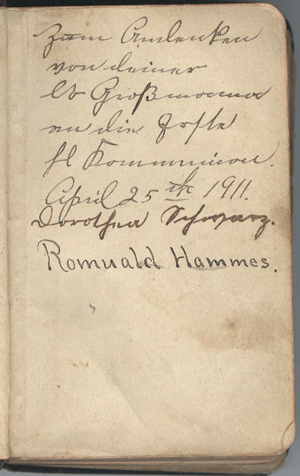 Zum Andenken
von deiner
lb Großmama
an die Erste
hl Kommunion.
April 25th 1911.
Dorothea Schwarz.
Romuald Hammes.